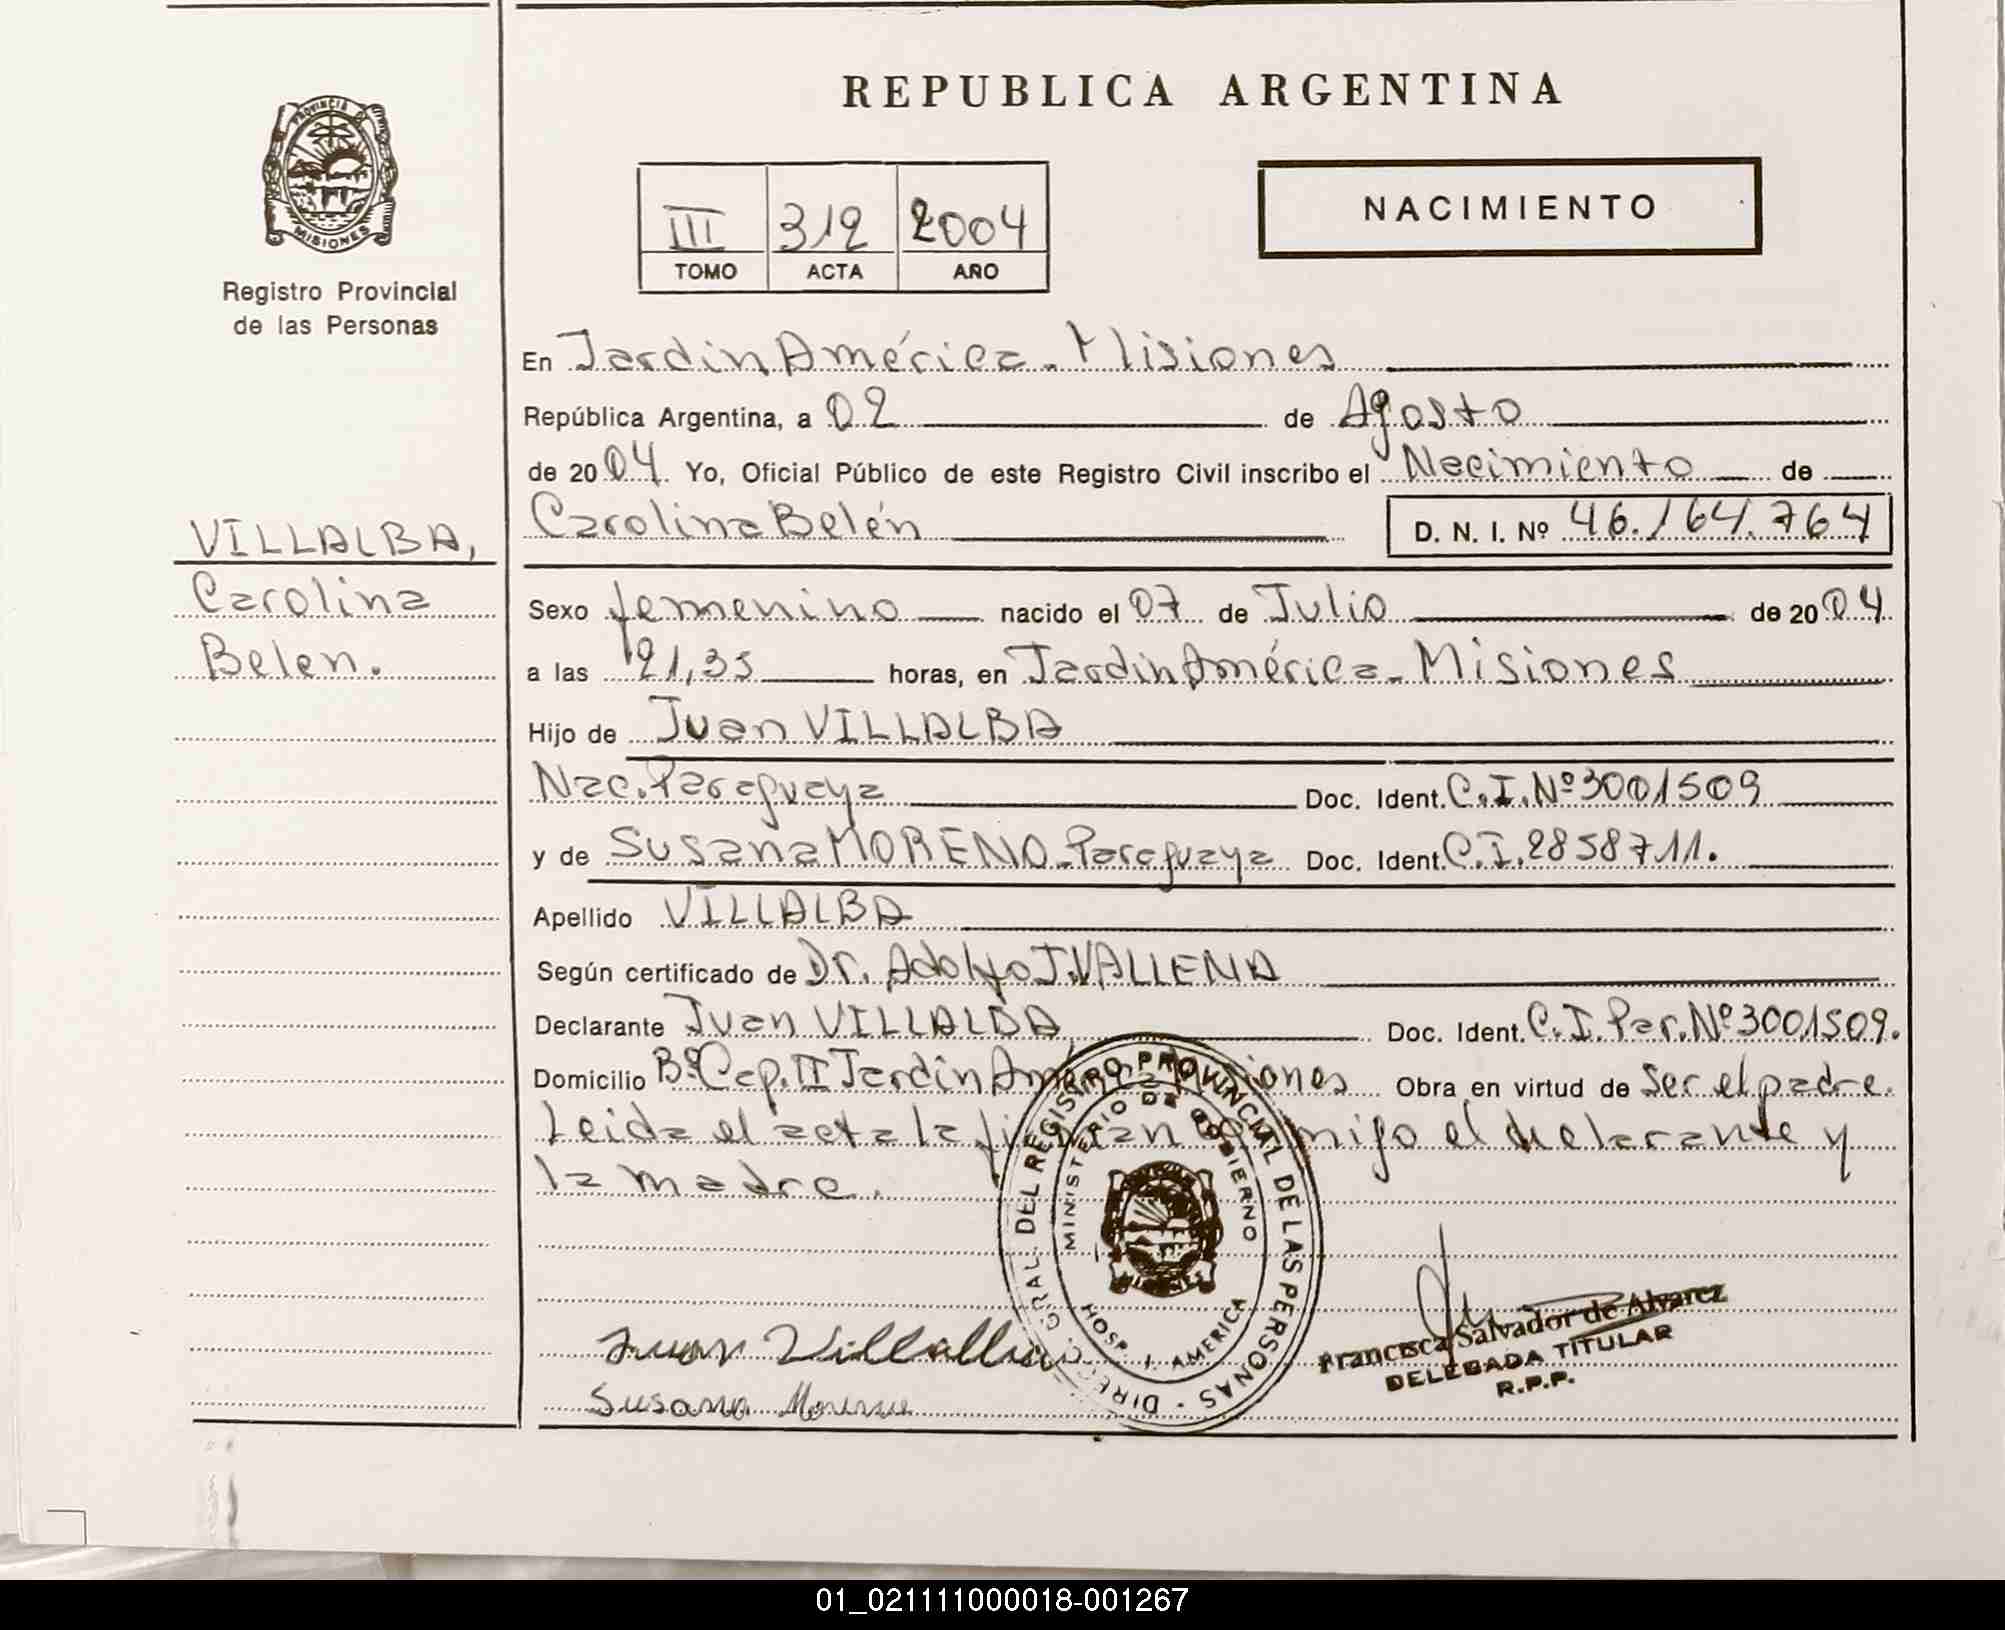 REPUBLICA ARGENTINA
PROVINCIA DE
MISIONES
Registro Provincial
de las Personas
III 312 2004
TOMO ACTA AÑO
NACIMIENTO
En Jardín América - Misiones
República Argentina, a 02 de Agosto
de 2004 Yo, Oficial Público de este Registro Civil inscribo el Nacimiento de
Carolina Belén D. N. I. Nº 46.164.764
VILLALBA,
Carolina
Belen.
Sexo femenino nacido el 07 de Julio de 2004
a las 21,35 horas, en Jardín América - Misiones
Hijo de Juan VILLALBA
Nac. Paraguaya Doc. Ident. C.I. Nº 3001509
y de Susana MORENO - Paraguaya Doc. Ident. C.I. 2858711.
Apellido VILLALBA
Según certificado de Dr. Adolfo J. VALLENA
Declarante Juan VILLALBA Doc. Ident. C.I. Par. Nº 3001509.
Domicilio Bº Cap. II Jardín América Misiones Obra en virtud de Ser el padre.
Leida el acta la firman conmigo el declarante y
la madre.
DIREC. GRAL. DEL REGISTRO PROVINCIAL DE LAS PERSONAS -
MINISTERIO DE GOBIERNO
HOSP. J. AMERICA
Juan Villalba
Susana Moreno
Francisca Salvador de Alvarez
DELEGADA TITULAR
R.P.P.
01_021111000018-001267